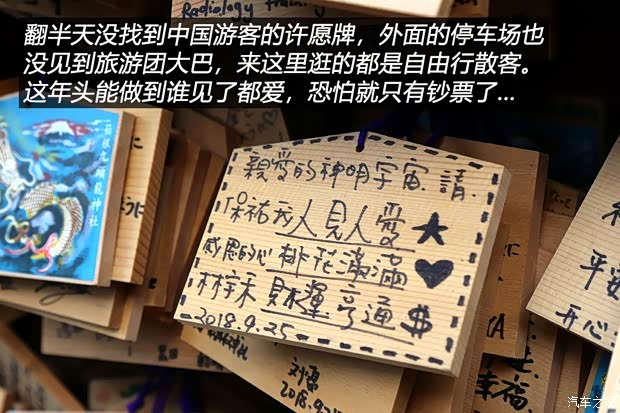 Radiology
翻半天没找到中国游客的许愿牌，外面的停车场也
没见到旅游团大巴，来这里逛的都是自由行散客。
这年头能做到谁见了都爱，恐怕就只有钞票了...
箱根九頭龍神社
親愛的神明宇宙.請.
保祐我人見人愛★
感恩的心 桃花滿滿♥
林梓禾 財運亨通$
2018.9.25
平安
开心
刘雷
2018.9
幸福
汽车之家